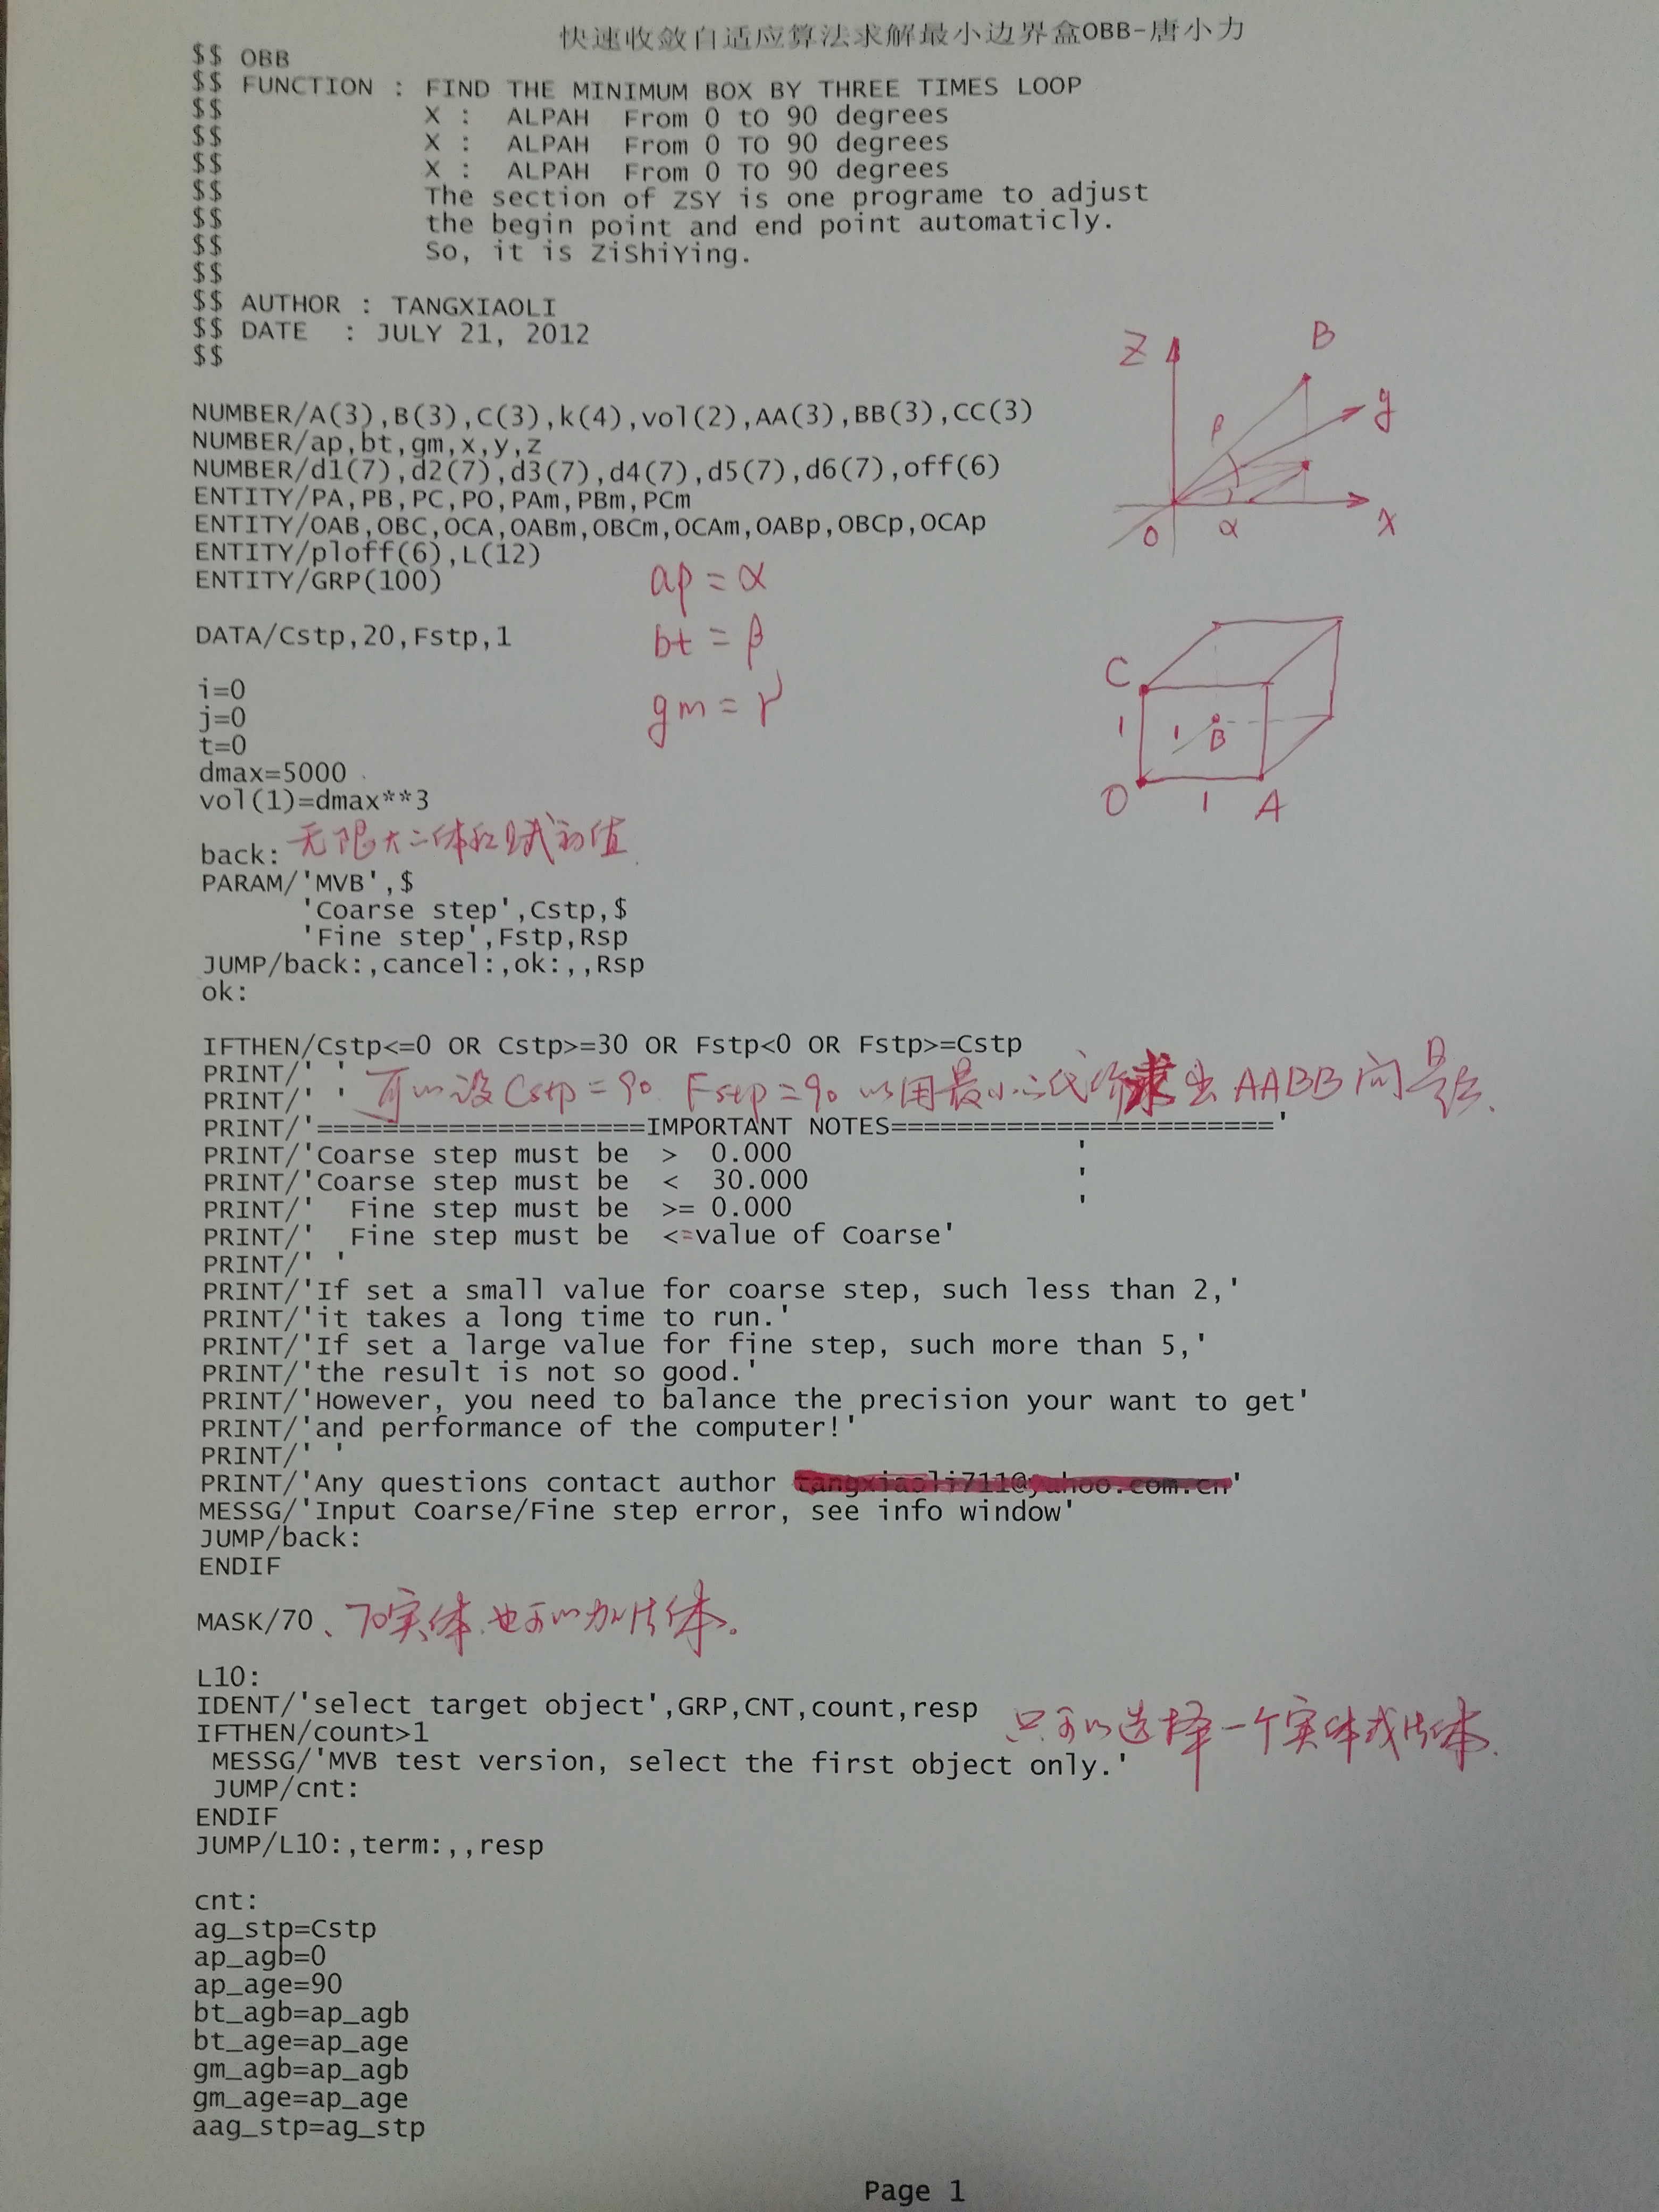 快速收敛自适应算法求解最小边界盒OBB-唐小力
$$ OBB
$$ FUNCTION : FIND THE MINIMUM BOX BY THREE TIMES LOOP
$$ X : ALPAH From 0 to 90 degrees
$$ X : ALPAH From 0 TO 90 degrees
$$ X : ALPAH From 0 TO 90 degrees
$$ The section of ZSY is one programe to adjust
$$ the begin point and end point automaticly.
$$ So, it is ZiShiYing.
$$
$$ AUTHOR : TANGXIAOLI
$$ DATE : JULY 21, 2012
$$
Z
B
y
β
O
α
X
NUMBER/A(3),B(3),C(3),k(4),vol(2),AA(3),BB(3),CC(3)
NUMBER/ap,bt,gm,x,y,z
NUMBER/d1(7),d2(7),d3(7),d4(7),d5(7),d6(7),off(6)
ENTITY/PA,PB,PC,PO,PAm,PBm,PCm
ENTITY/OAB,OBC,OCA,OABm,OBCm,OCAm,OABp,OBCp,OCAp
ENTITY/ploff(6),L(12)
ENTITY/GRP(100)
ap = α
DATA/Cstp,20,Fstp,1
bt = β
gm = γ
C
1
1
B
O
1
A
i=0
j=0
t=0
dmax=5000
vol(1)=dmax**3
back: 无限大 体积赋初值
PARAM/'MVB',$
'Coarse step',Cstp,$
'Fine step',Fstp,Rsp
JUMP/back:,cancel:,ok:,,Rsp
ok:
IFTHEN/Cstp<=0 OR Cstp>=30 OR Fstp<0 OR Fstp>=Cstp
PRINT/' '
PRINT/' ' 可以设Cstp=90. Fstp=90 以用最小 代价求出AABB问题.
PRINT/'====================IMPORTANT NOTES======================='
PRINT/'Coarse step must be > 0.000 '
PRINT/'Coarse step must be < 30.000 '
PRINT/' Fine step must be >= 0.000 '
PRINT/' Fine step must be <=value of Coarse'
PRINT/' '
PRINT/'If set a small value for coarse step, such less than 2,'
PRINT/'it takes a long time to run.'
PRINT/'If set a large value for fine step, such more than 5,'
PRINT/'the result is not so good.'
PRINT/'However, you need to balance the precision your want to get'
PRINT/'and performance of the computer!'
PRINT/' '
PRINT/'Any questions contact author '
MESSG/'Input Coarse/Fine step error, see info window'
JUMP/back:
ENDIF
MASK/70、70实体.也可以加片体.
L10:
IDENT/'select target object',GRP,CNT,count,resp
只可以选择一个实体或片体.
IFTHEN/count>1
MESSG/'MVB test version, select the first object only.'
JUMP/cnt:
ENDIF
JUMP/L10:,term:,,resp
cnt:
ag_stp=Cstp
ap_agb=0
ap_age=90
bt_agb=ap_agb
bt_age=ap_age
gm_agb=ap_agb
gm_age=ap_age
aag_stp=ag_stp
Page 1